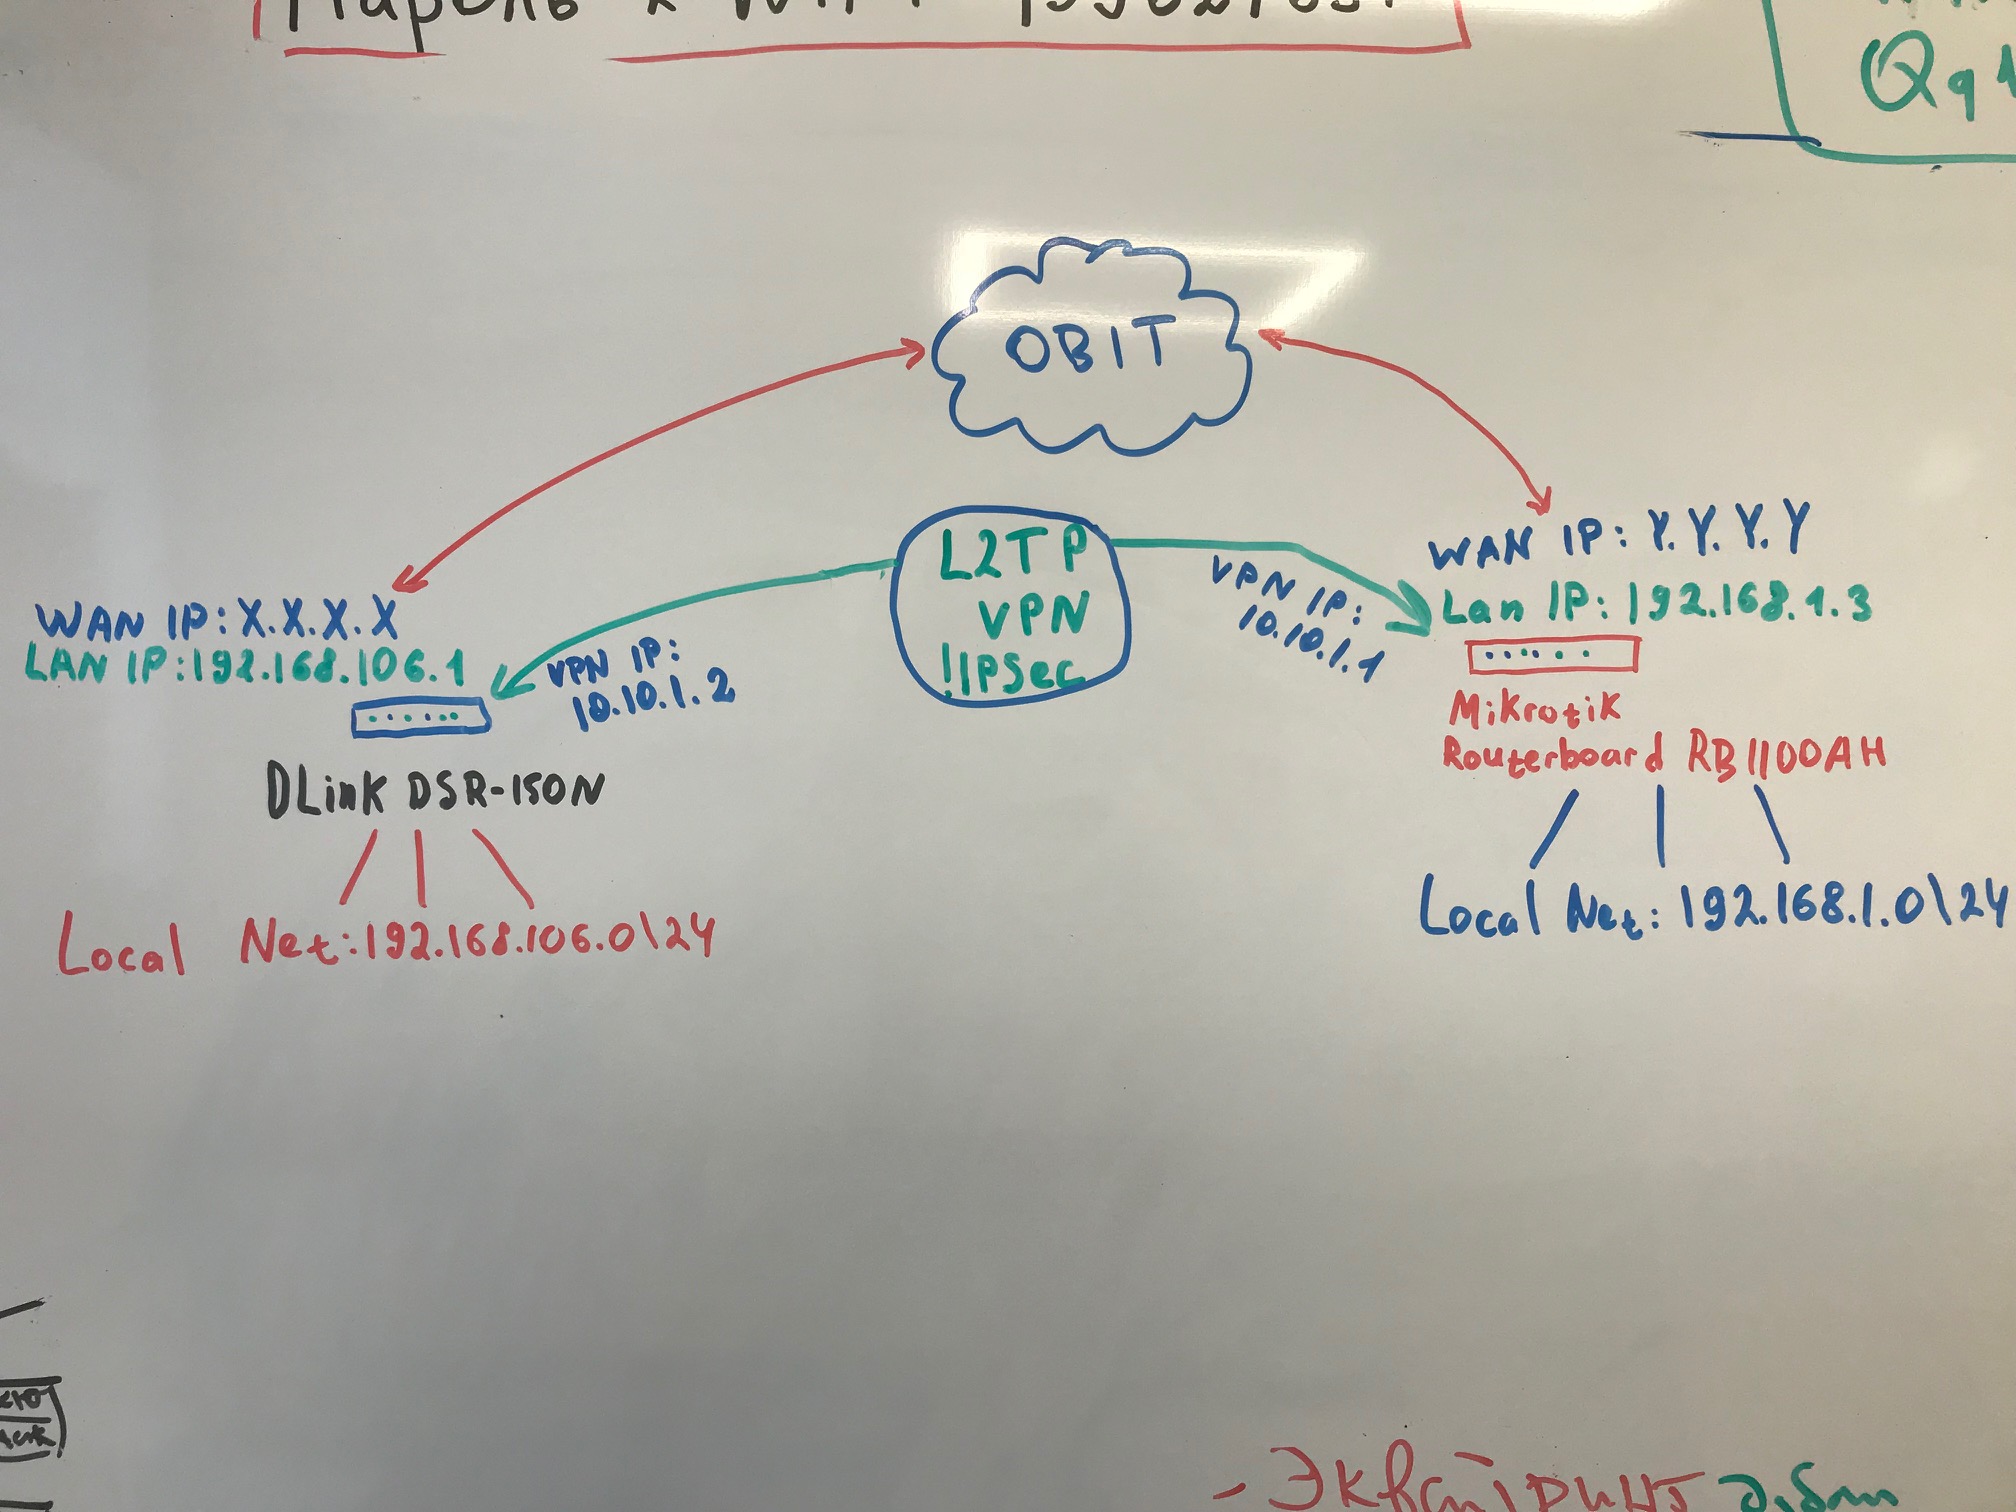 Пароль к WiFi
Qq1
OBIT
WAN IP: Y.Y.Y.Y
Lan IP: 192.168.1.3
L2TP
VPN
!IPSec
VPN IP:
10.10.1.1
WAN IP: X.X.X.X
LAN IP: 192.168.106.1
VPN IP:
10.10.1.2
Mikrotik
Routerboard RB1100AH
DLink DSR-150N
Local Net: 192.168.1.0\24
Local Net: 192.168.106.0\24
- Эквайринг